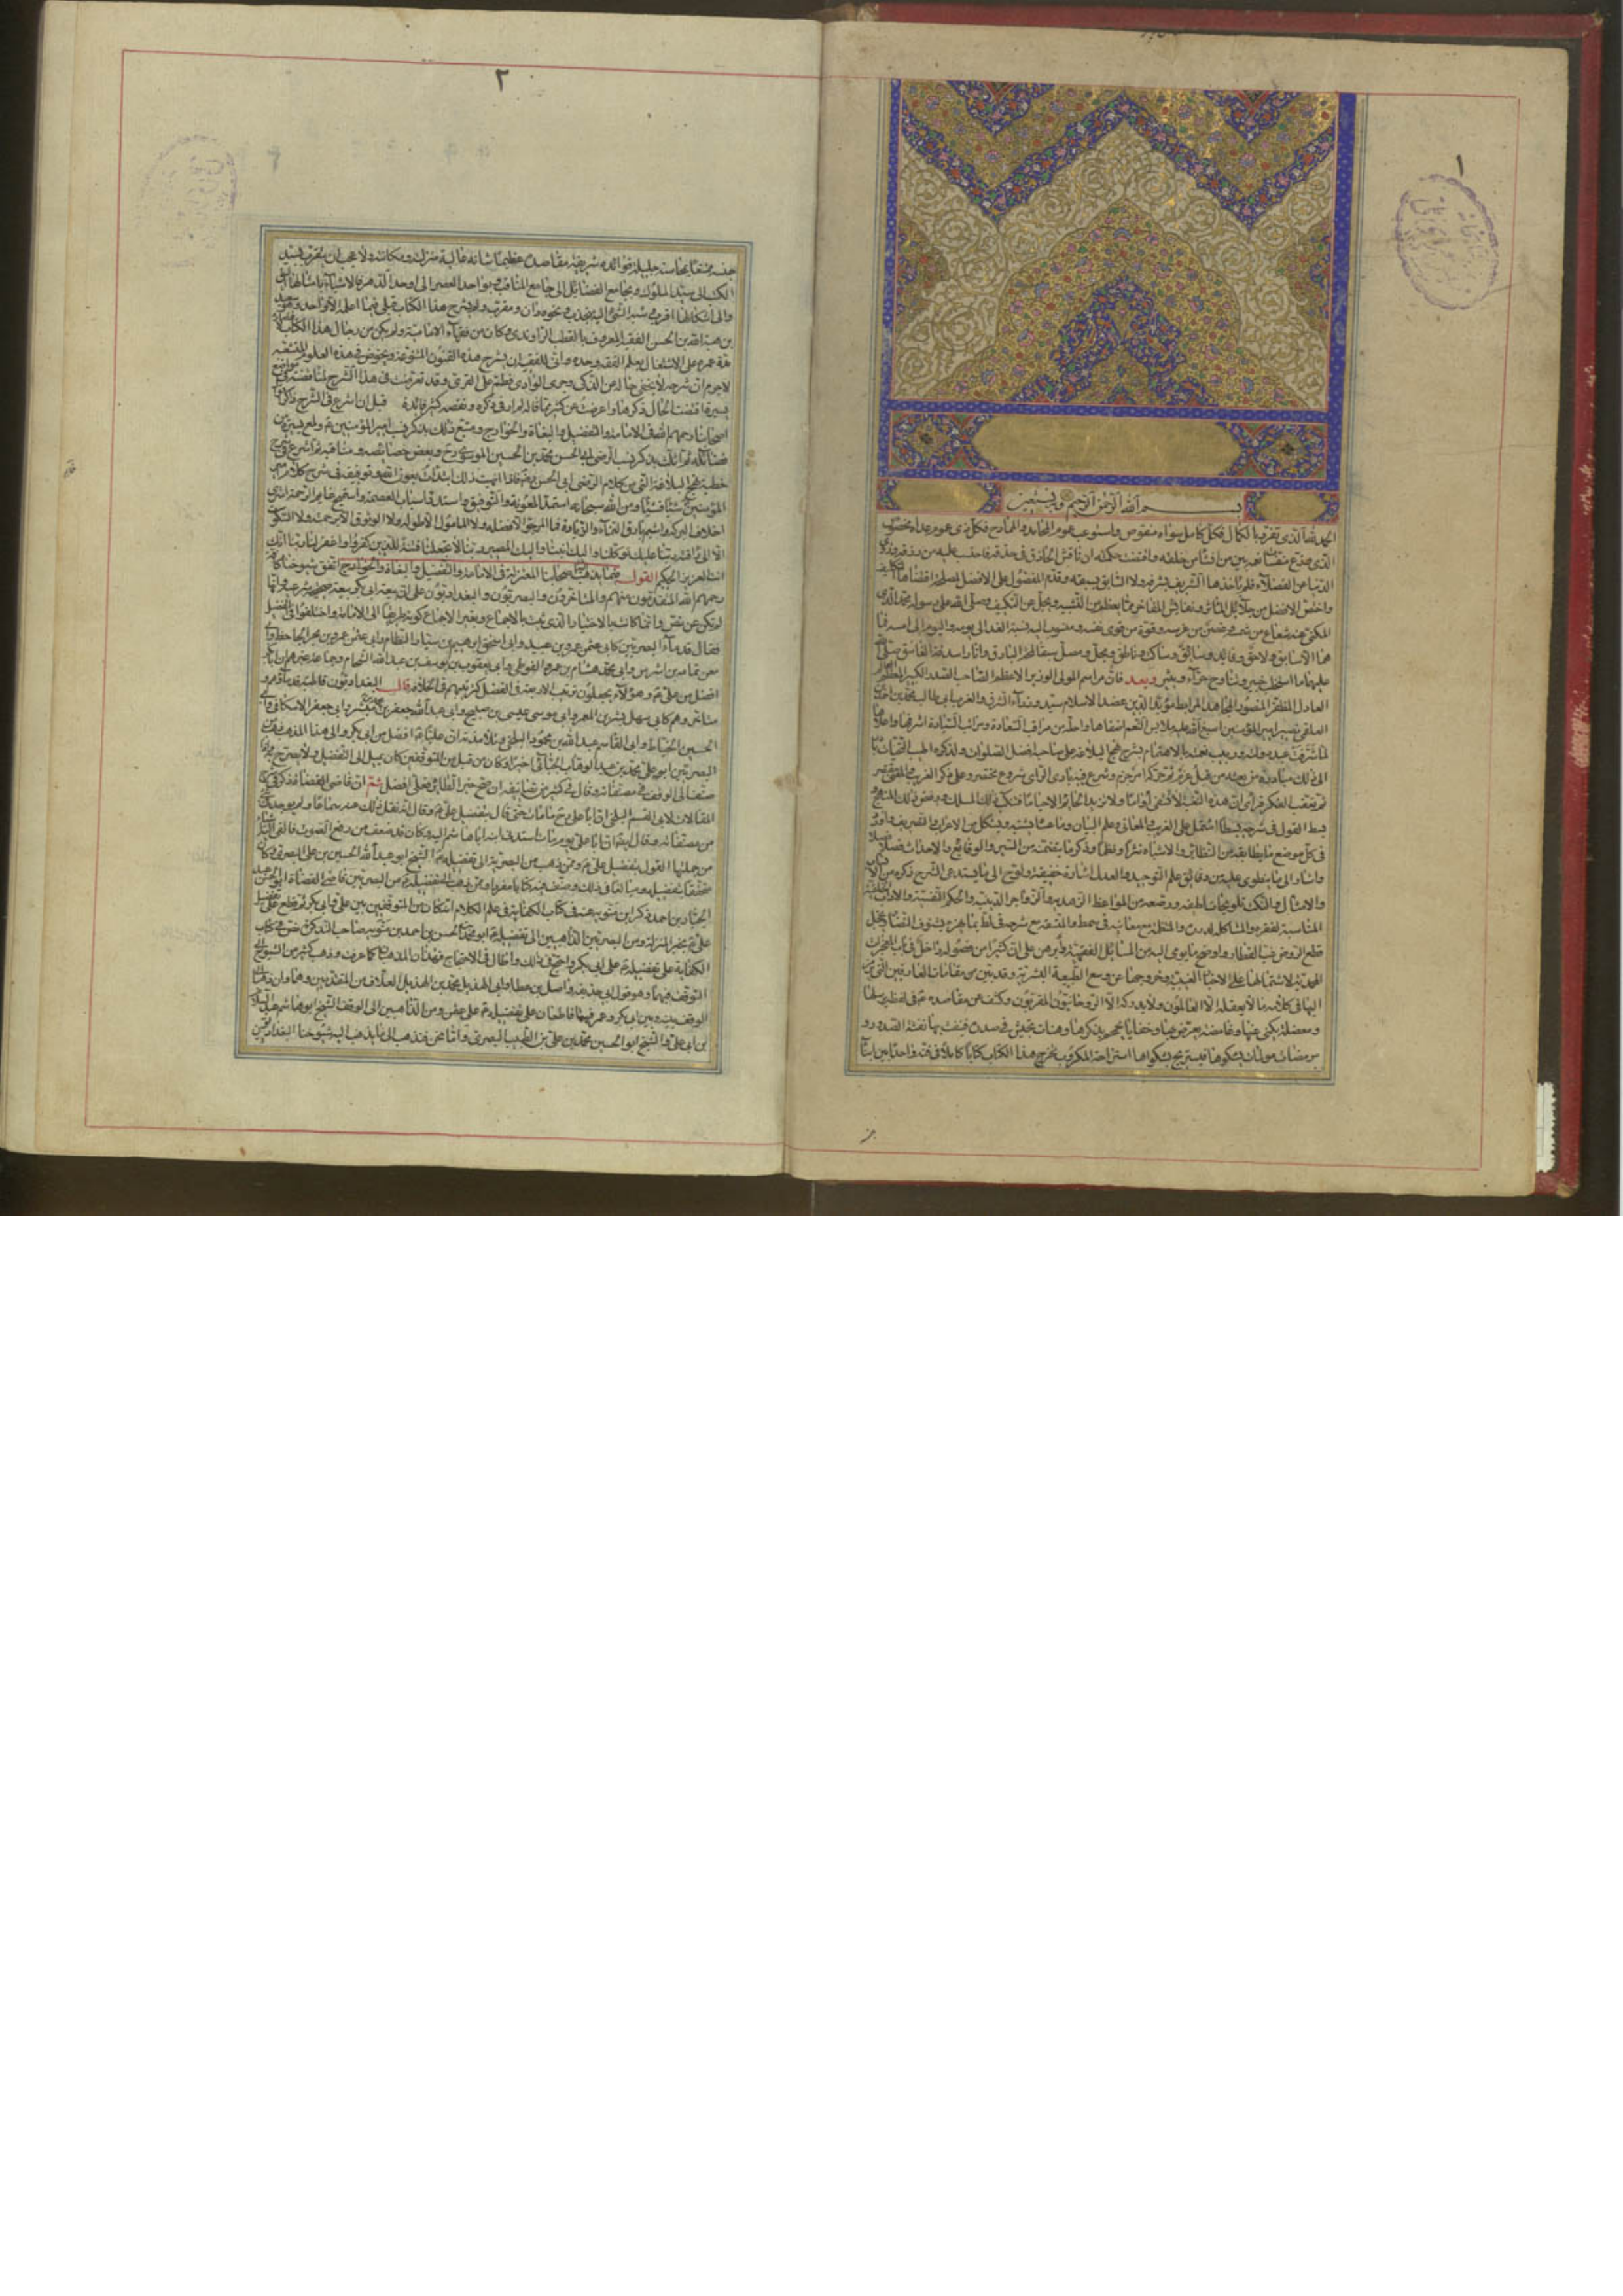 ١
بسم الله الرحمن الرحيم وبه نستعين
الحمد لله الذي تفرد بالكمال فكل كامل سواه منقوص واستوعب عموم المحامد والممادح فكل ذي عموم عداه مخصوص
الذي وزع منفسات نعمه بين من يشاء من خلقه واقتضت حكمته ان نافس الحاذق في حذقه فاحتسب به عليه من رزقه وزوى
الدنيا عن الفضلاء فلم ياخذها الشريف بشرفه ولا السابق بسبقه وقدم المفضول على الافضل لمصلحة اقتضاها التكليف
واختص الافضل من جلائل المآثر ونفائس المفاخر بما يعظم عن التشبيه ويجل عن التكييف وصلى الله على رسوله محمد الذي
المكنى عنه شعاع من شمسه وغصن من غرسه وقوة من قوى نفسه ومنسوب اليه نسبة الغد الى يومه واليوم الى امسه فما
هما الا سابق ولاحق وقائد وسائق وساكت وناطق ومجل ومصل سبقا لمحة البارق وانارا سدفة الغاسق صلى الله
عليهما ما استخلب خبير وتناوح حراء وثبير وبعد فان مراسم المولى الوزير الاعظم الصاحب الصدر الكبير المعظم
العادل المظفر المنصور المجاهد المرابط مؤيد الدين عضد الاسلام سيد وزراء الشرق والغرب ابي طالب محمد بن احمد
العلقمي نصير امير المؤمنين اسبغ الله عليه من ملابس النعم اضفاها واحله من مراقب السعادة ومراتب السيادة اشرفها واعلاها
لما شرفت عبد دولته وربيب نعمته بالاهتمام بشرح نهج البلاغة على صاحبه افضل الصلوات ولذكره اطيب التحيات بادر
الى ذلك مبادرة من بعثه من قبل عزم ثم حركه امر جزم وشرع فيه بادي الراي شروع مختصر وعلى ذكر الغريب والمعنى مقتصر
ثم تعقب الفكر فراى ان هذه النغبة لا تشفي اواما ولا تزيد الحائم الا حياما فتنكب ذلك المسلك ورفض ذلك المنهج
وبسط القول في شرحه بسطا اشتمل على الغريب والمعاني وعلم البيان وما عساه يشتبه ويشكل من الاعراب والتصريف واورد
في كل موضع ما يطابقه من النظائر والاشباه نثرا ونظما وذكر ما يتضمنه من السير والوقائع والاحداث فصلا فصلا
واشار الى ما ينطوي عليه من دقائق علم التوحيد والعدل اشارة خفيفة ولوح الى ما يستدعي الشرح ذكره من الانساب
والامثال والنكت تلويحات لطيفة ورصعه من المواعظ الزهدية والزواجر الدينية والحكم النفسية والاداب الخلقية
المناسبة لفقره والمشاكلة لدرره والمنتظمة مع معانيه في سمط والمتسقة مع جواهره في لط بما يهزء بشنوف النضار ويخجل
قطع الروض غب القطار واوضح ما يومي اليه من المسائل الفقهية وبرهن على ان كثيرا من فصوله داخل في باب المعجزات
المحمدية لاشتمالها على الاخبار الغيبية وخروجها عن وسع الطبيعة البشرية وبين من مقامات العارفين التي يرمز
اليها في كلامه ما لا يعقله الا العالمون ولا يدركه الا الروحانيون المقربون وكشف عن مقاصده في لفظة يرسلها
ومعضلة يكنى عنها وغامضة يعرض بها وخفايا يجمجم بذكرها وهنات تجيش في صدره فينفث بها نفثة المصدور
ومرمضات مؤلمات يشكوها فيستريح بشكواها استراحة المكروب فخرج هذا الكتاب كتابا كاملا في فنه واحدا بين ابناء
٢
جنسه ممتعا بمحاسنه جليلة فوائده شريفة مقاصده عظيما شانه عالية منزلته ومكانه ولا عجب ان يتقرب بسيد
الكتب الى سيد الملوك وبجامع الفضائل الى جامع المناقب وبواحد العصر الى اوحد الدهر فالاشياء بامثالها اليق
والى اشكالها اقرب وشبه الشيء اليه منجذب ونحوه دان ومقترب ولم يشرح هذا الكتاب قبلي فيما اعلمه الا واحد وهو سعيد
بن هبة الله بن الحسن الفقيه المعروف بالقطب الراوندي وكان من فقهاء الامامية ولم يكن من رجال هذا الكتاب لاقتصاره
مدة عمره على الاشتغال بعلم الفقه وحده وانى للفقيه ان يشرح هذه الفنون المتنوعة ويخوض في هذه العلوم المتشعبة
لا جرم ان شرحه لا يخفى حاله عن الذكي وجرى الوادي فطم على القرى وقد تعرضت في هذا الشرح لمناقضته في مواضع
يسيرة اقتضت الحال ذكرها واعرضت عن كثير مما قاله اذ لم ار في ذكره ونقضه كثير فائدة قبل ان اشرع في الشرح اذكر اقوال
اصحابنا رحمهم الله في الامامة والتفضيل والبغاة والخوارج ومتبع ذلك بذكر نسب امير المؤمنين ع ولمع يسيرة من
فضائله ثم اثلث بذكر نسب الرضي ابي الحسن محمد بن الحسين الموسوي رح وبعض خصائصه ومناقبه ثم اشرع في شرح
خطبة نهج البلاغة التي من كلام الرضي ابي الحسن رح فاذا انهيت ذلك ابتدات بعون الله وتوفيقه في شرح كلام امير
المؤمنين ع شيئا فشيئا ومن الله سبحانه استمد المعونة والتوفيق واستدر اسباب العصمة واستميح غمائم الرحمة وامتري
اخلاف البركة واشيم بارق النماء والزيادة فما المرجو الا فضله ولا المامول الا طوله ولا الوثوق الا برحمته ولا السكون
الا الى رافته ربنا عليك توكلنا واليك انبنا واليك المصير ربنا لا تجعلنا فتنة للذين كفروا واغفر لنا ربنا انك
انت العزيز الحكيم القول فيما يذهب اليه اصحابنا المعتزلة في الامامة والتفضيل والبغاة والخوارج اتفق شيوخنا كافة
رحمهم الله المتقدمون منهم والمتاخرون والبصريون والبغداديون على ان بيعة ابي بكر بيعة صحيحة شرعية وانها
لم تكن عن نص وانما كانت بالاختيار الذي ثبت بالاجماع وبغير الاجماع كونه طريقا الى الامامة واختلفوا في التفضيل
فقال قدماء البصريين كابي عثمن عمرو بن عبيد وابي اسحق ابرهيم بن سيار النظام وابي عثمن عمرو بن بحر الجاحظ وابي
معن ثمامة بن اشرس وابي محمد هشام بن عمرو الفوطي وابي يعقوب يوسف بن عبد الله الشحام وجماعة غيرهم ان ابا بكر
افضل من علي ع وهؤلاء يجعلون ترتيب الاربعة في الفضل كترتيبهم في الخلافة قالت البغداديون قاطبة قدماؤهم و
متاخروهم كابي سهل بشر بن المعتمر وابي موسى عيسى بن صبيح وابي عبد الله جعفر بن مبشر وابي جعفر الاسكافي وابي
الحسين الخياط وابي القاسم عبد الله بن محمود البلخي وتلامذته ان عليا ع افضل من ابي بكر والى هذا المذهب ذهب من
البصريين ابو علي محمد بن عبد الوهاب الجبائي اخيرا وكان من قبل من المتوقفين كان يميل الى التفضيل ولا يصرح به واذا
صنف ذهب الى الوقف في مصنفاته وقال في كثير من تصانيفه ان صح خبر الطائر فعلي افضل ثم ان قاضي القضاة ذكر في شرح
المقالات لابي القسم البلخي ان ابا علي رح ما مات حتى قال بتفضيل علي ع وقال انه نقل ذلك عنه سماعا ولم يوجد في شيء
من مصنفاته وقال ايضا ان ابا علي يوم مات استدنى ابنه ابا هاشم اليه وكان قد ضعف عن رفع الصوت فالقى اليه اشياء
من جملتها القول بتفضيل علي ع وممن ذهب من البصريين الى تفضيله ع الشيخ ابو عبد الله الحسين بن علي البصري وكان
متحققا بتفضيله ومبالغا في ذلك وصنف فيه كتابا مفردا وممن ذهب الى تفضيله ع من البصريين قاضي القضاة ابو الحسن عبد
الجبار بن احمد ذكر ابن متويه عنه في كتاب الكفاية في علم الكلام انه كان من المتوقفين بين علي وابي بكر ثم قطع على تفضيل
علي ع بخبر المنزلة ومن البصريين الذاهبين الى تفضيله ع ابو محمد الحسن بن احمد بن متويه صاحب التذكرة نص في كتاب
الكفاية على تفضيله ع على ابي بكر واحتج في ذلك واطال في الاحتجاج فهذان المذهبان كما عرفت وذهب كثير من الشيوخ الى
التوقف فيهما وهو قول ابي حذيفة واصل بن عطا وابي الهذيل محمد بن الهذيل العلاف من المتقدمين وهما وان ذهبا الى
الوقف بينه وبين ابي بكر وعمر فهما قاطعان على تفضيله ع على عثمن ومن الذاهبين الى الوقف الشيخ ابو هاشم عبد السلام
بن ابي علي والشيخ ابو الحسين محمد بن علي بن الطيب البصري واما نحن فنذهب الى ما يذهب اليه شيوخنا البغداديون